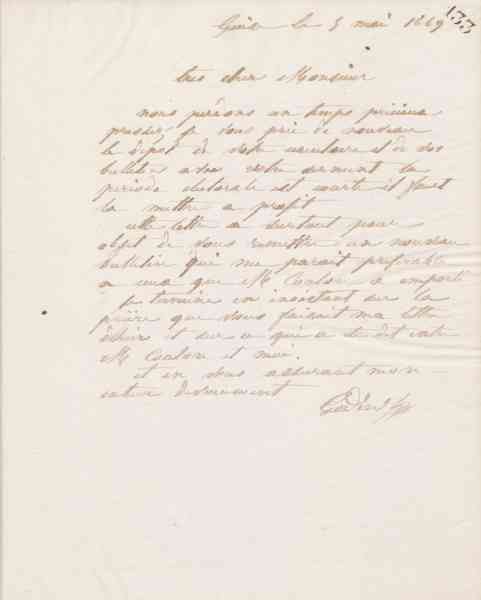 133
Guise le 5 mai 1869
très cher Monsieur
nous perdons un temps précieux
pressez, je vous prie de nouveau
le dépôt de votre circulaire et de vos
bulletins avec votre serment la
période électorale est courte il faut
la mettre a profit
cette lettre a surtout pour
objet de vous remettre un nouveau
bulletin qui me parait préférable
a ceux que M Coulon a emporté
je termine en insistant sur la
prière que vous faisait ma lettre
d'hier et sur ce qui a été dit entre
M Coulon et moi.
et en vous assurant mon
entier dévouement
Godin